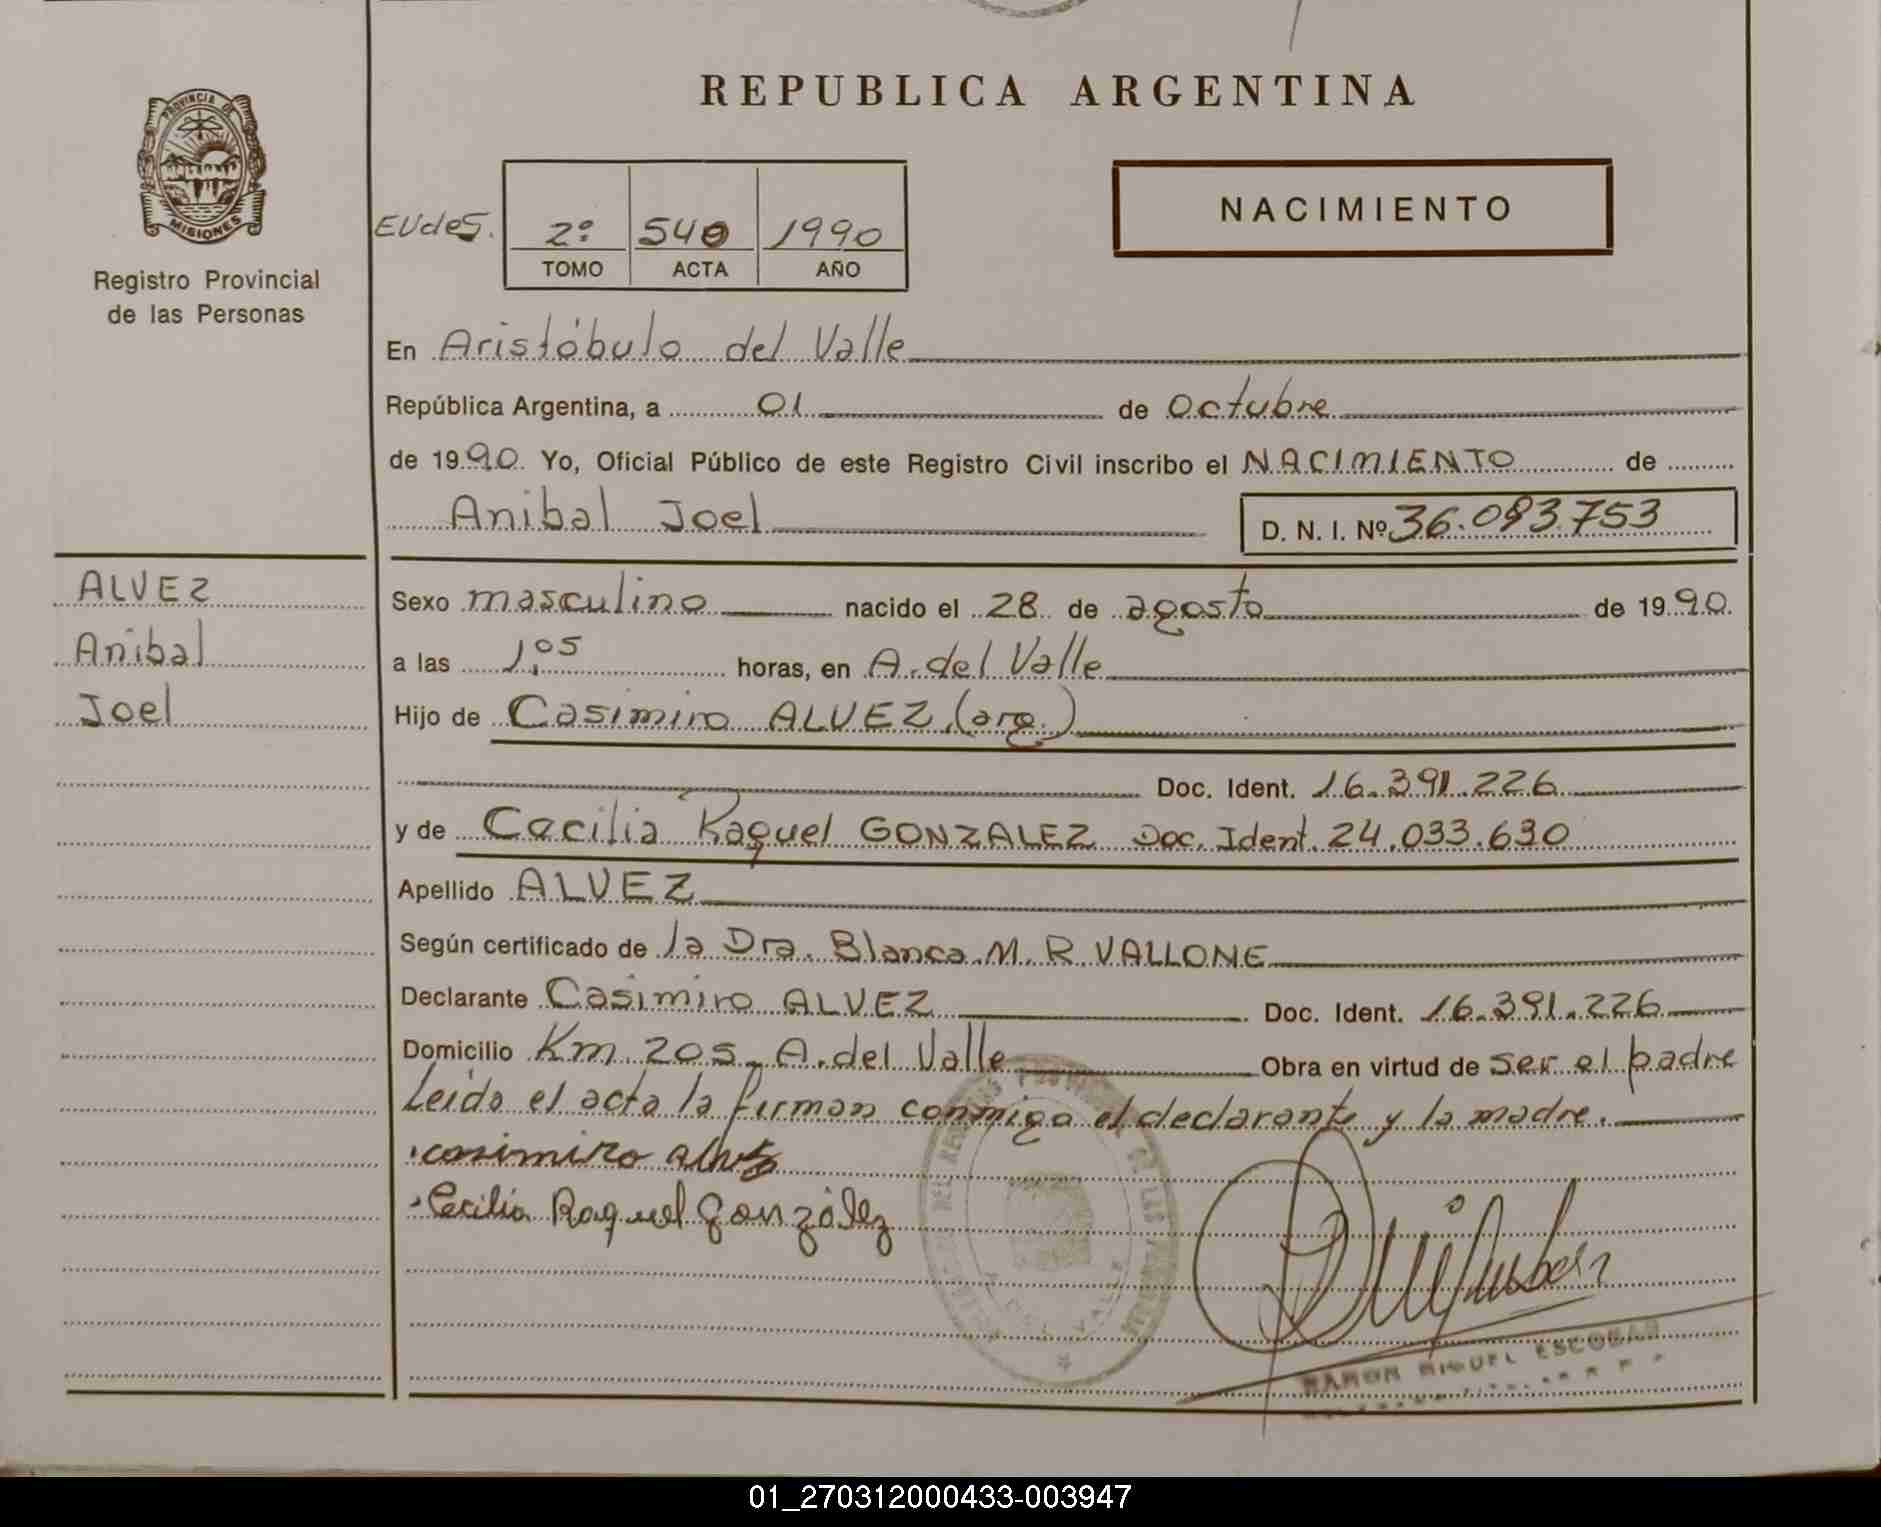 PROVINCIA DE
MISIONES
Registro Provincial
de las Personas
REPUBLICA ARGENTINA
NACIMIENTO
EUdeS. 2º 540 1990
TOMO ACTA AÑO
En Aristóbulo del Valle
República Argentina, a 01 de Octubre
de 1990 Yo, Oficial Público de este Registro Civil inscribo el NACIMIENTO de
Anibal Joel D. N. I. Nº 36.093.753
ALVEZ
Anibal
Joel
Sexo masculino nacido el 28 de agosto de 1990
a las 1,05 horas, en A. del Valle
Hijo de Casimiro ALVEZ (arg.)
Doc. Ident. 16.391.226
y de Cecilia Raquel GONZALEZ Doc. Ident. 24.033.630
Apellido ALVEZ
Según certificado de la Dra. Blanca M. R. VALLONE
Declarante Casimiro ALVEZ Doc. Ident. 16.391.226
Domicilio Km 205 A. del Valle Obra en virtud de ser el padre
Leída el acta la firman conmigo el declarante y la madre.
casimiro alvez
Cecilia Raquel González
RAMON MIGUEL ESCOBAR
01_270312000433-003947